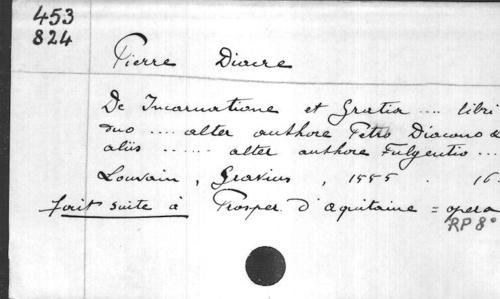 453
824
Pierre Diacre
De Incarnatione et Gratia .... libri
duo .... alter authore Petro Diacono &
aliis ...... alter authore Fulgentio ...
Louvain, Gravius, 1555. 16.
fait suite à Prosper d'Aquitaine = opera
RP 8°